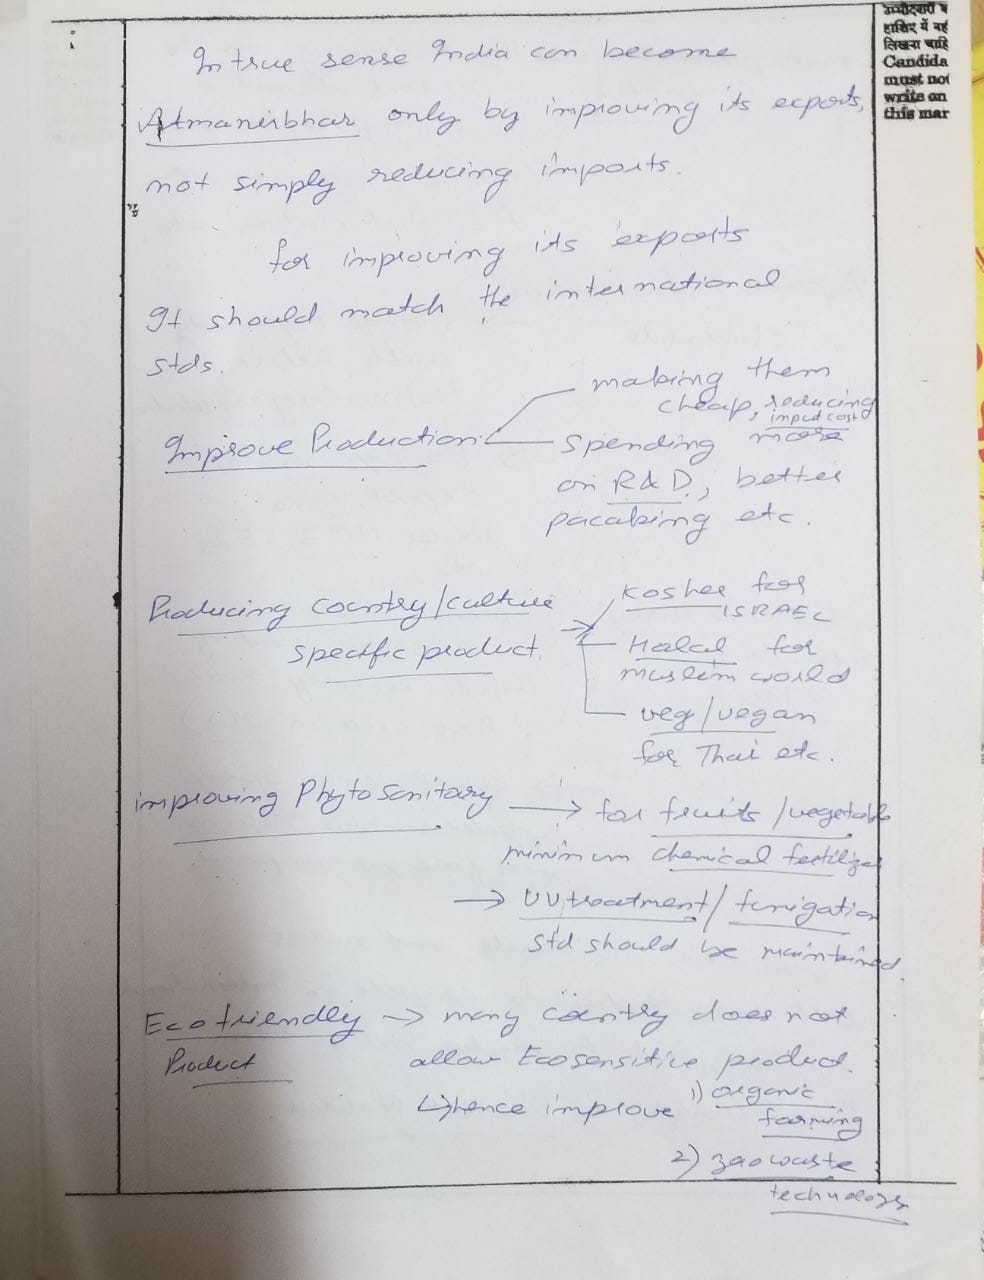 उम्मीदवारों
हाशिए में नहीं
लिखना चाहि
Candida
must not
write on
this mar
In true sense India can become
Atmanirbhar only by improving its exports,
not simply reducing imports.
for improving its exports
It should match the international
stds.
making them
cheap, reducing
input cost
Improve Production
spending more
on R&D, better
pacaking etc.
Producing country/culture
specific product
Kosher for
ISRAEL
Halal for
muslim world
veg/vegan
for Thai etc.
improving Phytosanitary → for fruits/vegetable
minimum chemical fertilizer
→ UV treatment/fumigation
std should be maintained.
Ecofriendly → many country does not
Product
allow Ecosensitive product.
↳ hence improve 1) organic
farming
2) zao waste
technology